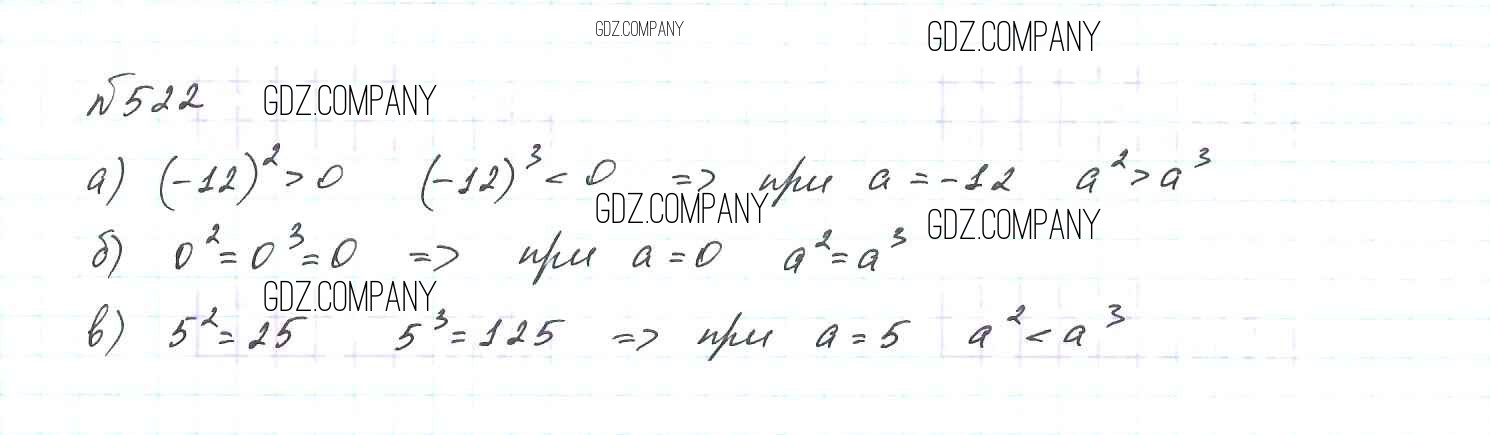 GDZ.COMPANY
GDZ.COMPANY
№522 GDZ.COMPANY
а) (-12)² > 0 (-12)³ < 0 => при a = -12 a² > a³
GDZ.COMPANY GDZ.COMPANY
б) 0² = 0³ = 0 => при a = 0 a² = a³
GDZ.COMPANY
в) 5² = 25 5³ = 125 => при a = 5 a² < a³